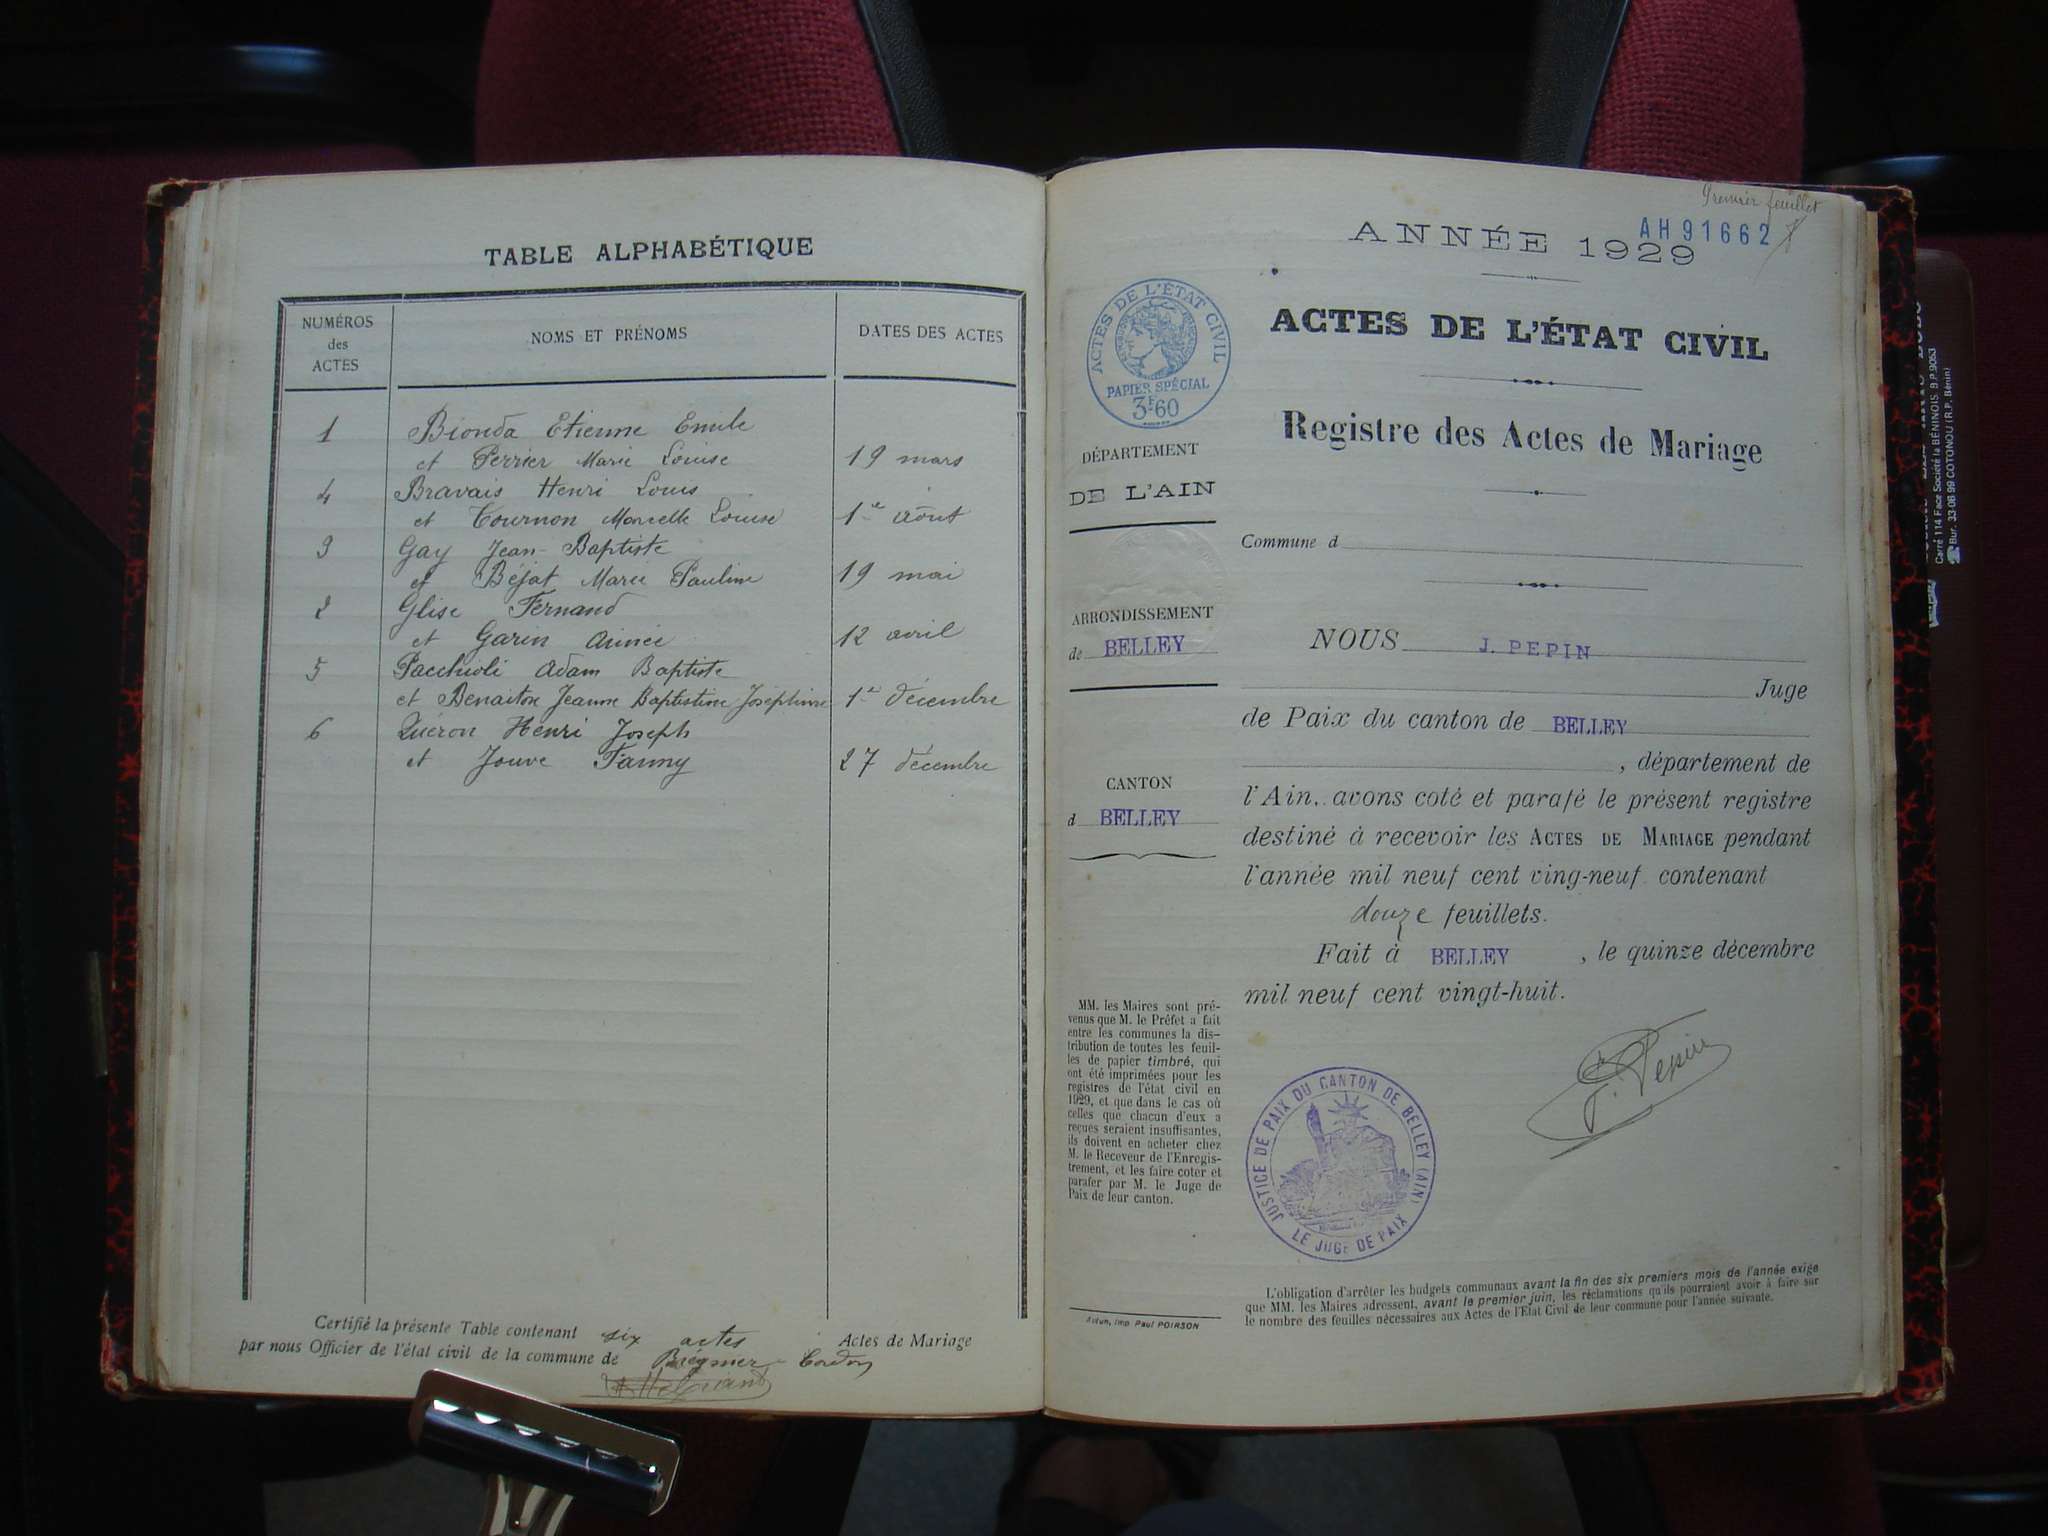 TABLE ALPHABÉTIQUE
NUMÉROS des ACTES
NOMS ET PRÉNOMS
DATES DES ACTES
1 Bionda Etienne Emile
et Perrier Marie Louise 19 mars
4 Bravais Henri Louis
et Tournon Marcelle Louise 1er août
3 Gay Jean-Baptiste
et Béjat Marie Pauline 19 mai
2 Glise Fernand
et Garin Aimée 12 avril
5 Pacchioli Adam Baptiste
et Benaiton Jeanne Baptistine Joséphine 1er décembre
6 Quéron Henri Joseph
et Jouve Fanny 27 décembre
Certifié la présente Table contenant six actes Actes de Mariage
par nous Officier de l'état civil de la commune de Brégnier-Cordon
Premier feuillet
AH91662
ANNÉE 1929
ACTES DE L'ÉTAT CIVIL
PAPIER SPÉCIAL
3F60
ACTES DE L'ÉTAT CIVIL
Registre des Actes de Mariage
DÉPARTEMENT
DE L'AIN
Commune d
ARRONDISSEMENT
de BELLEY
CANTON
d BELLEY
NOUS J. PEPIN
Juge
de Paix du canton de BELLEY
, département de
l'Ain, avons coté et parafé le présent registre
destiné à recevoir les ACTES DE MARIAGE pendant
l'année mil neuf cent ving-neuf contenant
douze feuillets.
Fait à BELLEY , le quinze décembre
mil neuf cent vingt-huit.
J. Pepin
MM. les Maires sont pré-
venus que M. le Préfet a fait
entre les communes la dis-
tribution de toutes les feuil-
les de papier timbré, qui
ont été imprimées pour les
registres de l'état civil en
1929, et que dans le cas où
celles que chacun d'eux a
reçues seraient insuffisantes,
ils doivent en acheter chez
M. le Receveur de l'Enregis-
trement, et les faire coter et
parafer par M. le Juge de
Paix de leur canton.
JUSTICE DE PAIX DU CANTON DE BELLEY (AIN)
LE JUGE DE PAIX
Autun, Imp. Paul POIRSON
L'obligation d'arrêter les budgets communaux avant la fin des six premiers mois de l'année exige
que MM. les Maires adressent, avant le premier juin, les réclamations qu'ils pourraient avoir à faire sur
le nombre des feuilles nécessaires aux Actes de l'Etat Civil de leur commune pour l'année suivante.
Carré 114 Face Société la BÉNINOIS. B.P. 9053
Bur. 33 06 99 COTONOU (R.P. Bénin)